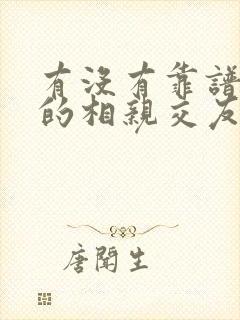 有沒有靠譜
的相親交友
唐聞生